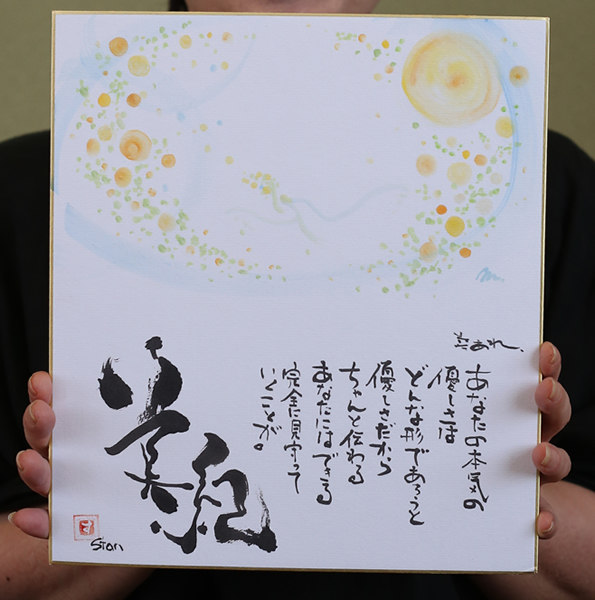 幸あれ、
あなたの本気の
優しさは
どんな形であろうと
優しさだから
ちゃんと伝わる
あなたにはできる
完全に見守って
いくことが。
美紀
Sion